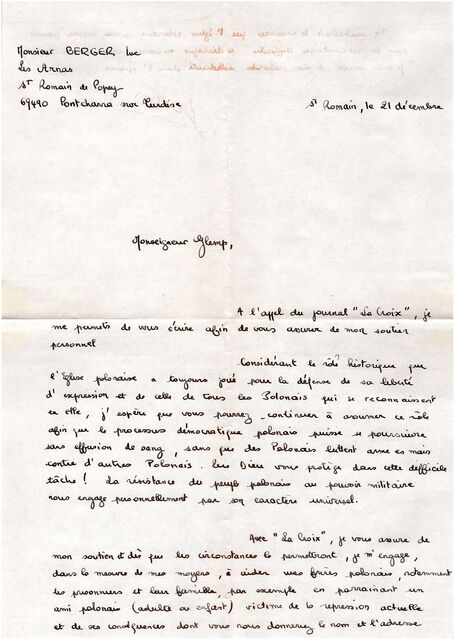 Monsieur BERGER Luc
Les Arnas
St Romain de Popey
69490 Pontcharra sur Turdine
St Romain, le 21 décembre
Monseigneur Glemp,
A l'appel du journal "La Croix", je
me permets de vous écrire afin de vous assurer de mon soutien
personnel
Considérant le rôle historique que
l'Eglise polonaise a toujours joué pour la défense de sa liberté
d'expression et de celle de tous les Polonais qui se reconnaissent
en elle, j'espère que vous pourrez continuer à assumer ce rôle
afin que le processus démocratique polonais puisse se poursuivre
sans effusion de sang, sans que des Polonais luttent arme en main
contre d'autres Polonais. Que Dieu vous protège dans cette difficile
tâche ! La résistance du peuple polonais au pouvoir militaire
nous engage personnellement par son caractère universel.
Avec "La Croix", je vous assure de
mon soutien et dès que les circonstances le permettront, je m'engage,
dans la mesure de mes moyens, à aider mes frères polonais, notamment
les prisonniers et leurs familles, par exemple en parrainant un
ami polonais (adulte ou enfant) victime de la répression actuelle
et de ses conséquences dont vous nous donnerez le nom et l'adresse